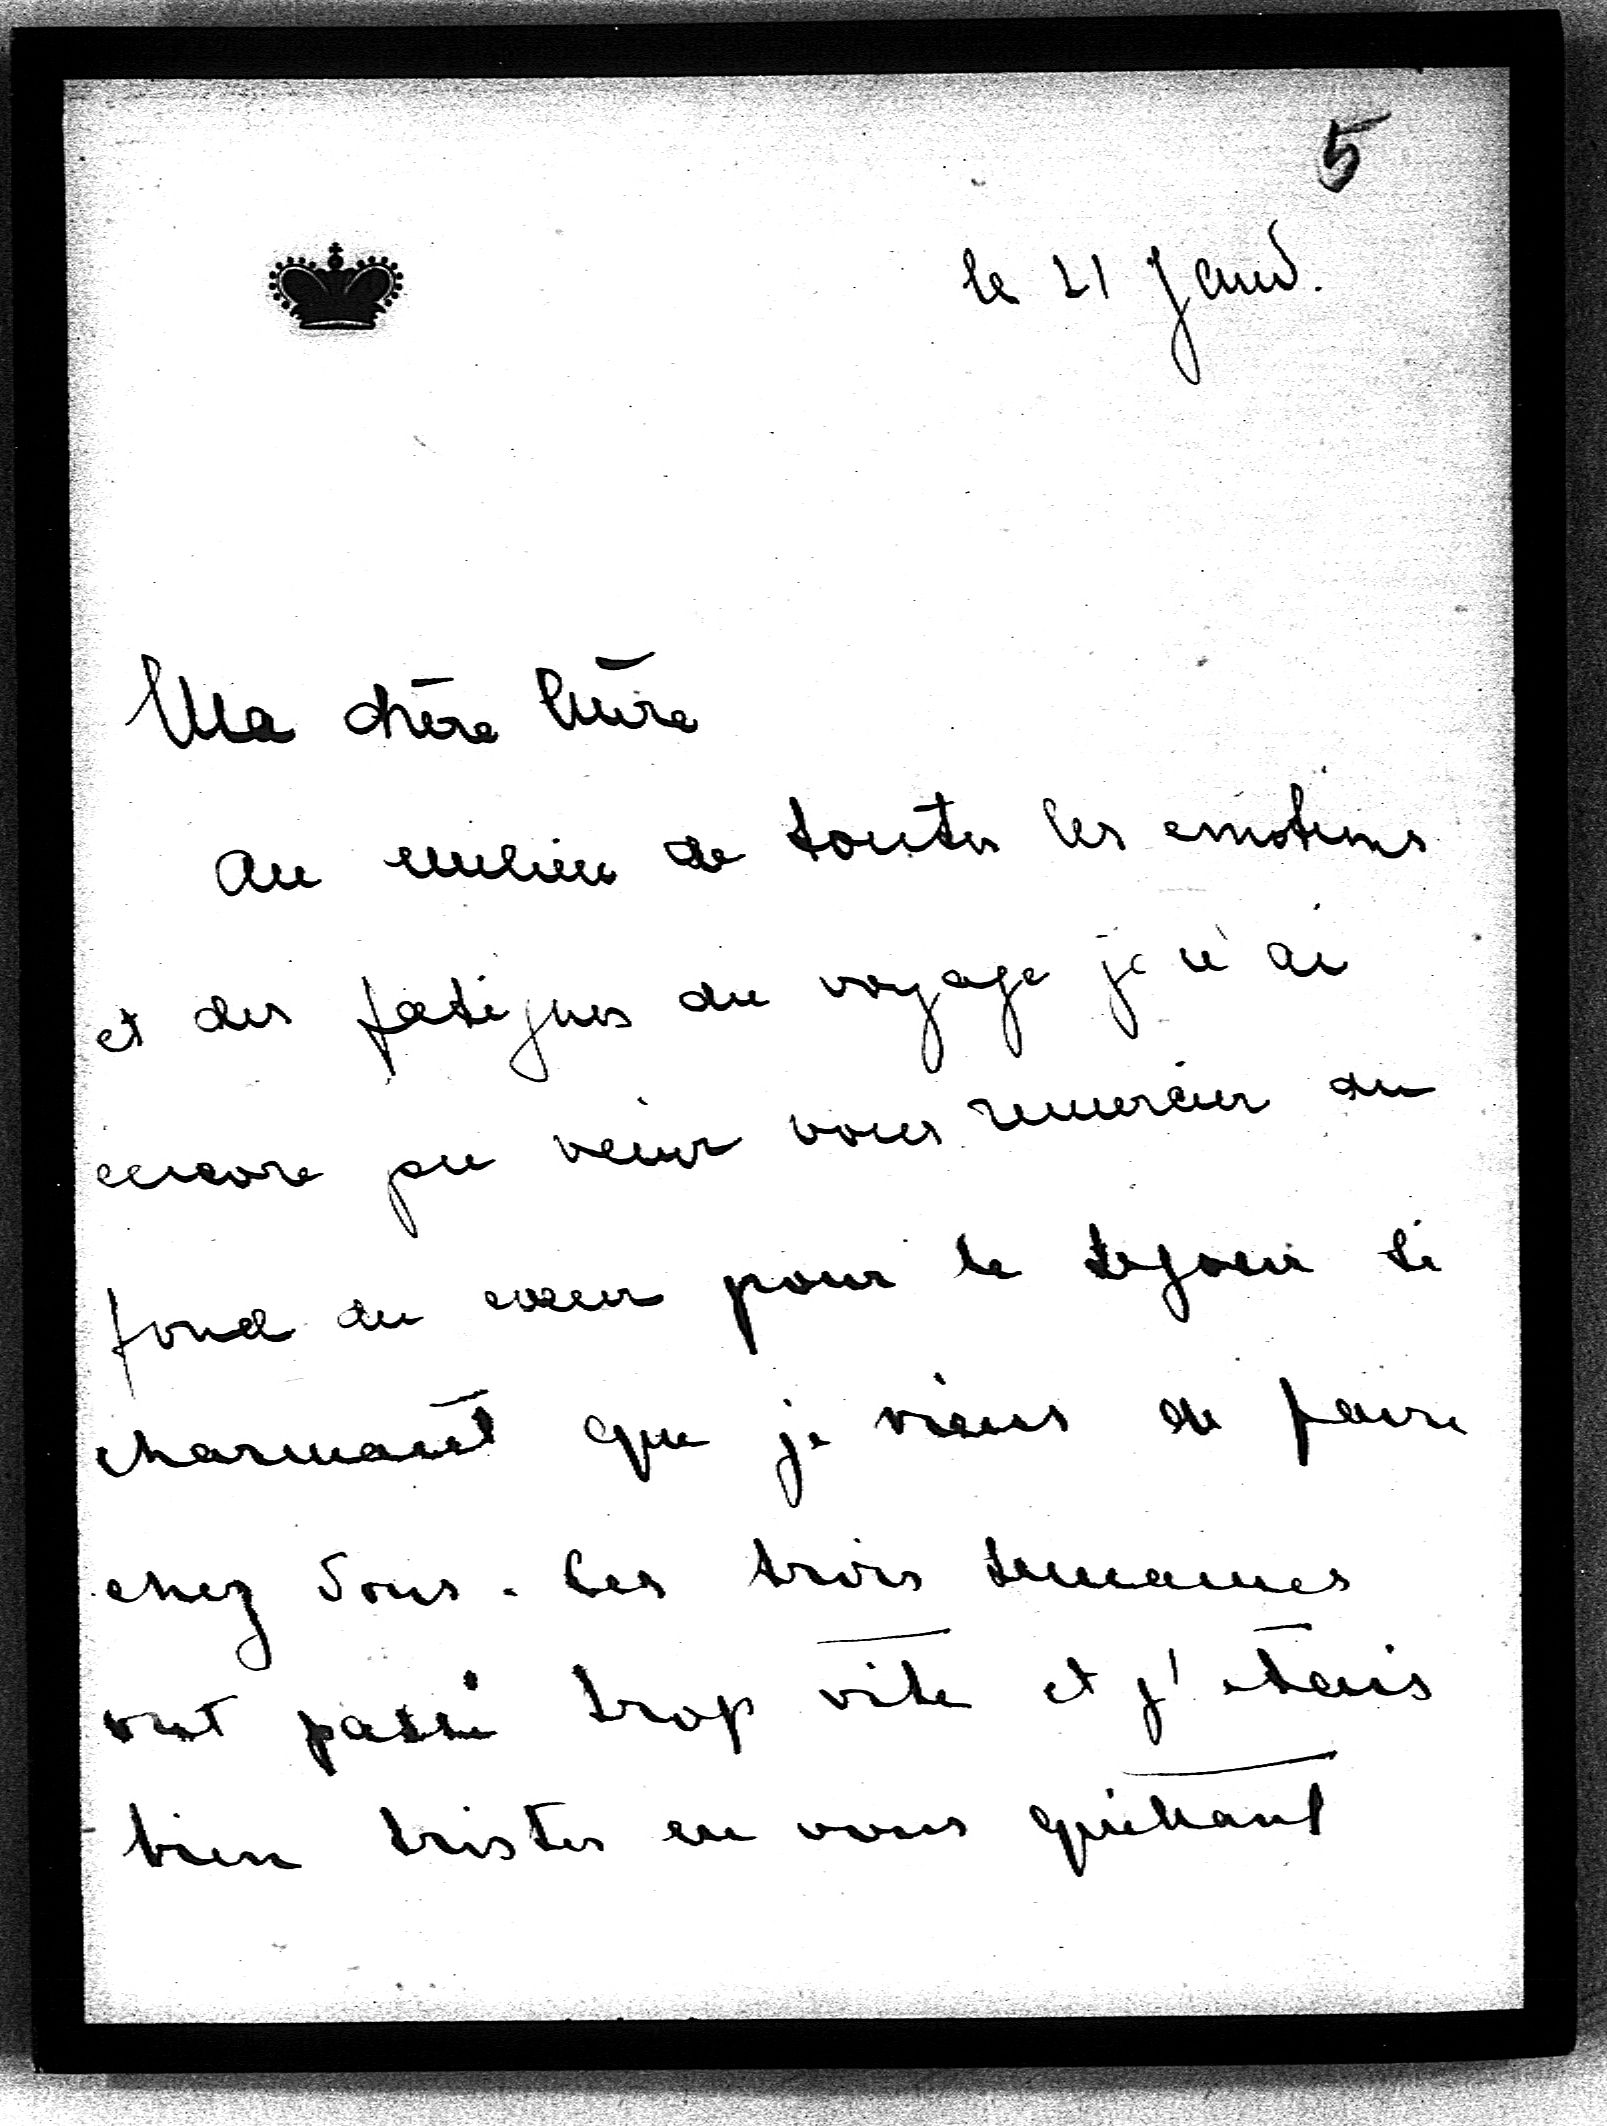 5
le 21 Janv.
Ma chère Mère
Au milieu de toutes les emotions
et des fatigues du voyage je n'ai
encore pu venir vous remercier du
fond du coeur pour le sejour si
charmant que je viens de faire
chez Vous. Ces trois semaines
ont passé trop vite et j'etais
bien tristes en vous quittant